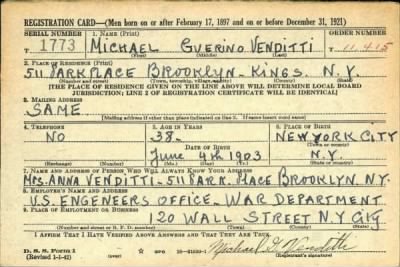 REGISTRATION CARD—(Men born on or after February 17, 1897 and on or before December 31, 1921)
SERIAL NUMBER 1. NAME (Print) ORDER NUMBER
1773 MICHAEL GUERINO VENDITTI T-11,415
(First) (Middle) (Last)
2. PLACE OF RESIDENCE (Print)
511 PARK PLACE BROOKLYN-KINGS. N.Y.
(Number and street) (Town, township, village, or city) (County) (State)
[THE PLACE OF RESIDENCE GIVEN ON THE LINE ABOVE WILL DETERMINE LOCAL BOARD
JURISDICTION; LINE 2 OF REGISTRATION CERTIFICATE WILL BE IDENTICAL]
3. MAILING ADDRESS
SAME
[Mailing address if other than place indicated on line 2. If same insert word same]
4. TELEPHONE 5. AGE IN YEARS 6. PLACE OF BIRTH
NO 38- NEW YORK CITY
DATE OF BIRTH (Town or county)
June 4th 1903 N.Y.
(Exchange) (Number) (Mo.) (Day) (Yr.) (State or country)
7. NAME AND ADDRESS OF PERSON WHO WILL ALWAYS KNOW YOUR ADDRESS
MRS. ANNA VENDITTI-511 PARK PLACE BROOKLYN N.Y.
8. EMPLOYER'S NAME AND ADDRESS
U.S. ENGENEERS OFFICE-WAR DEPARTMENT
9. PLACE OF EMPLOYMENT OR BUSINESS
120 WALL STREET N.Y City
(Number and street or R. F. D. number) (Town) (County) (State)
I AFFIRM THAT I HAVE VERIFIED ABOVE ANSWERS AND THAT THEY ARE TRUE.
D. S. S. Form 1
(Revised 1-1-42) GPO 16—21630-1 Michael G. Venditti
(Registrant's signature)